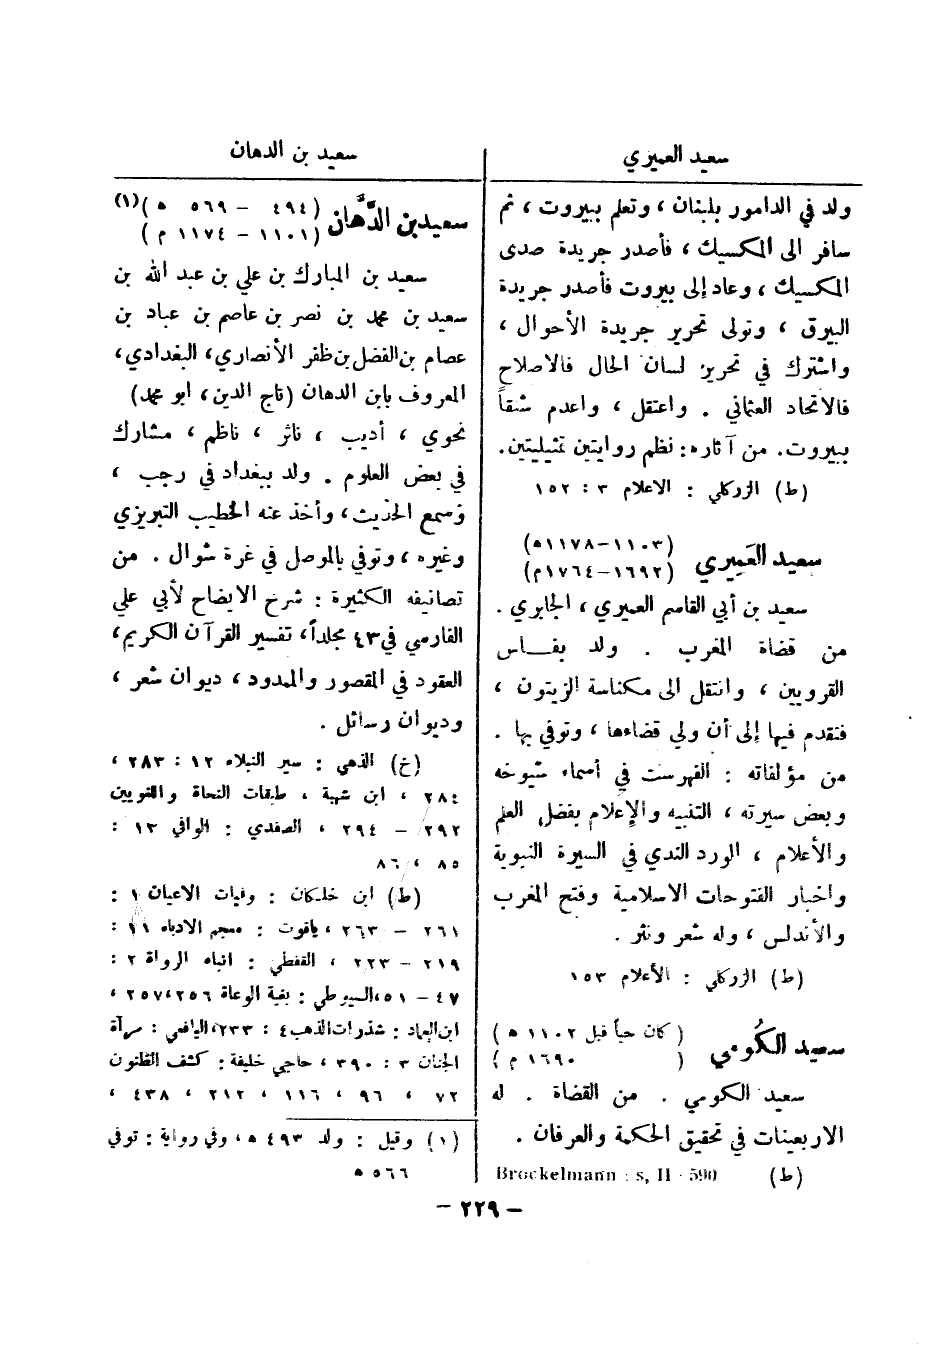 سعيد العميري
ولد في الدامور بلبنان ، وتعلم ببيروت ، ثم
سافر الى المكسيك ، فأصدر جريدة صدى
المكسيك ، وعاد إلى بيروت فأصدر جريدة
البرق ، وتولى تحرير جريدة الأحوال ،
واشترك في تحرير لسان الحال فالاصلاح
فالاتحاد العثماني . واعتقل ، واعدم شنقاً
ببيروت. من آثاره: نظم روايتين تمثيليتين.
(ط) الزركلي : الاعلام ٣ : ١٥٢
سعيد العَمِيري (١١٠٣–١١٧٨ه)
(١٦٩٢–١٧٦٤م)
سعيد بن أبي القاسم العميري ، الجابري .
من قضاة المغرب . ولد بفاس
القرويين ، وانتقل الى مكناسة الزيتون ،
فتقدم فيها إلى أن ولي قضاءها ، وتوفي بها .
من مؤلفاته : الفهرست في أسماء شيوخه
وبعض سيرته ، التنبيه والإعلام بفضل العلم
والأعلام ، الورد الندي في السيرة النبوية
واخبار الفتوحات الاسلامية وفتح المغرب
والأندلس ، وله شعر ونثر .
(ط) الزركلي : الأعلام ١٥٣
سعيد الكُومي (كان حياً قبل ١١٠٢ ه)
( ١٦٩٠ م)
سعيد الكومي . من القضاة . له
الاربعينات في تحقيق الحكمة والعرفان .
(ط) Brockelmann : s, II . 590
سعيد بن الدهان
سعيد بن الدَّهَّان (٤٩٤ – ٥٦٩ ه)(١)
(١١٠١ – ١١٧٤ م)
سعيد بن المبارك بن علي بن عبد الله بن
سعيد بن محمد بن نصر بن عاصم بن عباد بن
عصام بن الفضل بن ظفر الأنصاري، البغدادي،
المعروف بابن الدهان (ناج الدين، ابو محمد)
نحوي ، أديب ، ناثر ، ناظم ، مشارك
في بعض العلوم . ولد ببغداد في رجب ،
وسمع الحديث، وأخذ عنه الخطيب التبريزي
وغيره ، وتوفي بالموصل في غرة شوال . من
تصانيفه الكثيرة : شرح الايضاح لأبي علي
الفارسي في ٤٣ مجلداً، تفسير القرآن الكريم،
العقود في المقصور والممدود ، ديوان شعر ،
وديوان رسائل .
(خ) الذهبي : سير النبلاء ١٢ : ٢٨٣ ،
٢٨٤ ، ابن شهبة ، طبقات النحاة واللغويين
٢٩٢ – ٢٩٤ ، الصفدي : الوافي ١٣ :
٨٥ ، ٨٦
(ط) ابن خلكان : وفيات الاعيان ١ :
٢٦١ – ٢٦٣ ، ياقوت : معجم الادباء ١١ :
٢١٩ – ٢٢٣ ، القفطي : انباه الرواة ٢ :
٤٧ – ٥١، السيوطي : بغية الوعاة ٢٥٦، ٢٥٧ ،
ابن العماد : شذرات الذهب ٤ : ٢٣٣، اليافعي : مرآة
الجنان ٣ : ٣٩٠ ، حاجي خليفة : كشف الظنون
٧٢ ، ٩٦ ، ١١٦ ، ٢١٢ ، ٤٣٨ ،
(١) وقيل : ولد ٤٩٣ ه، وفي رواية : توفي
٥٦٦ ه
– ٢٢٩ –